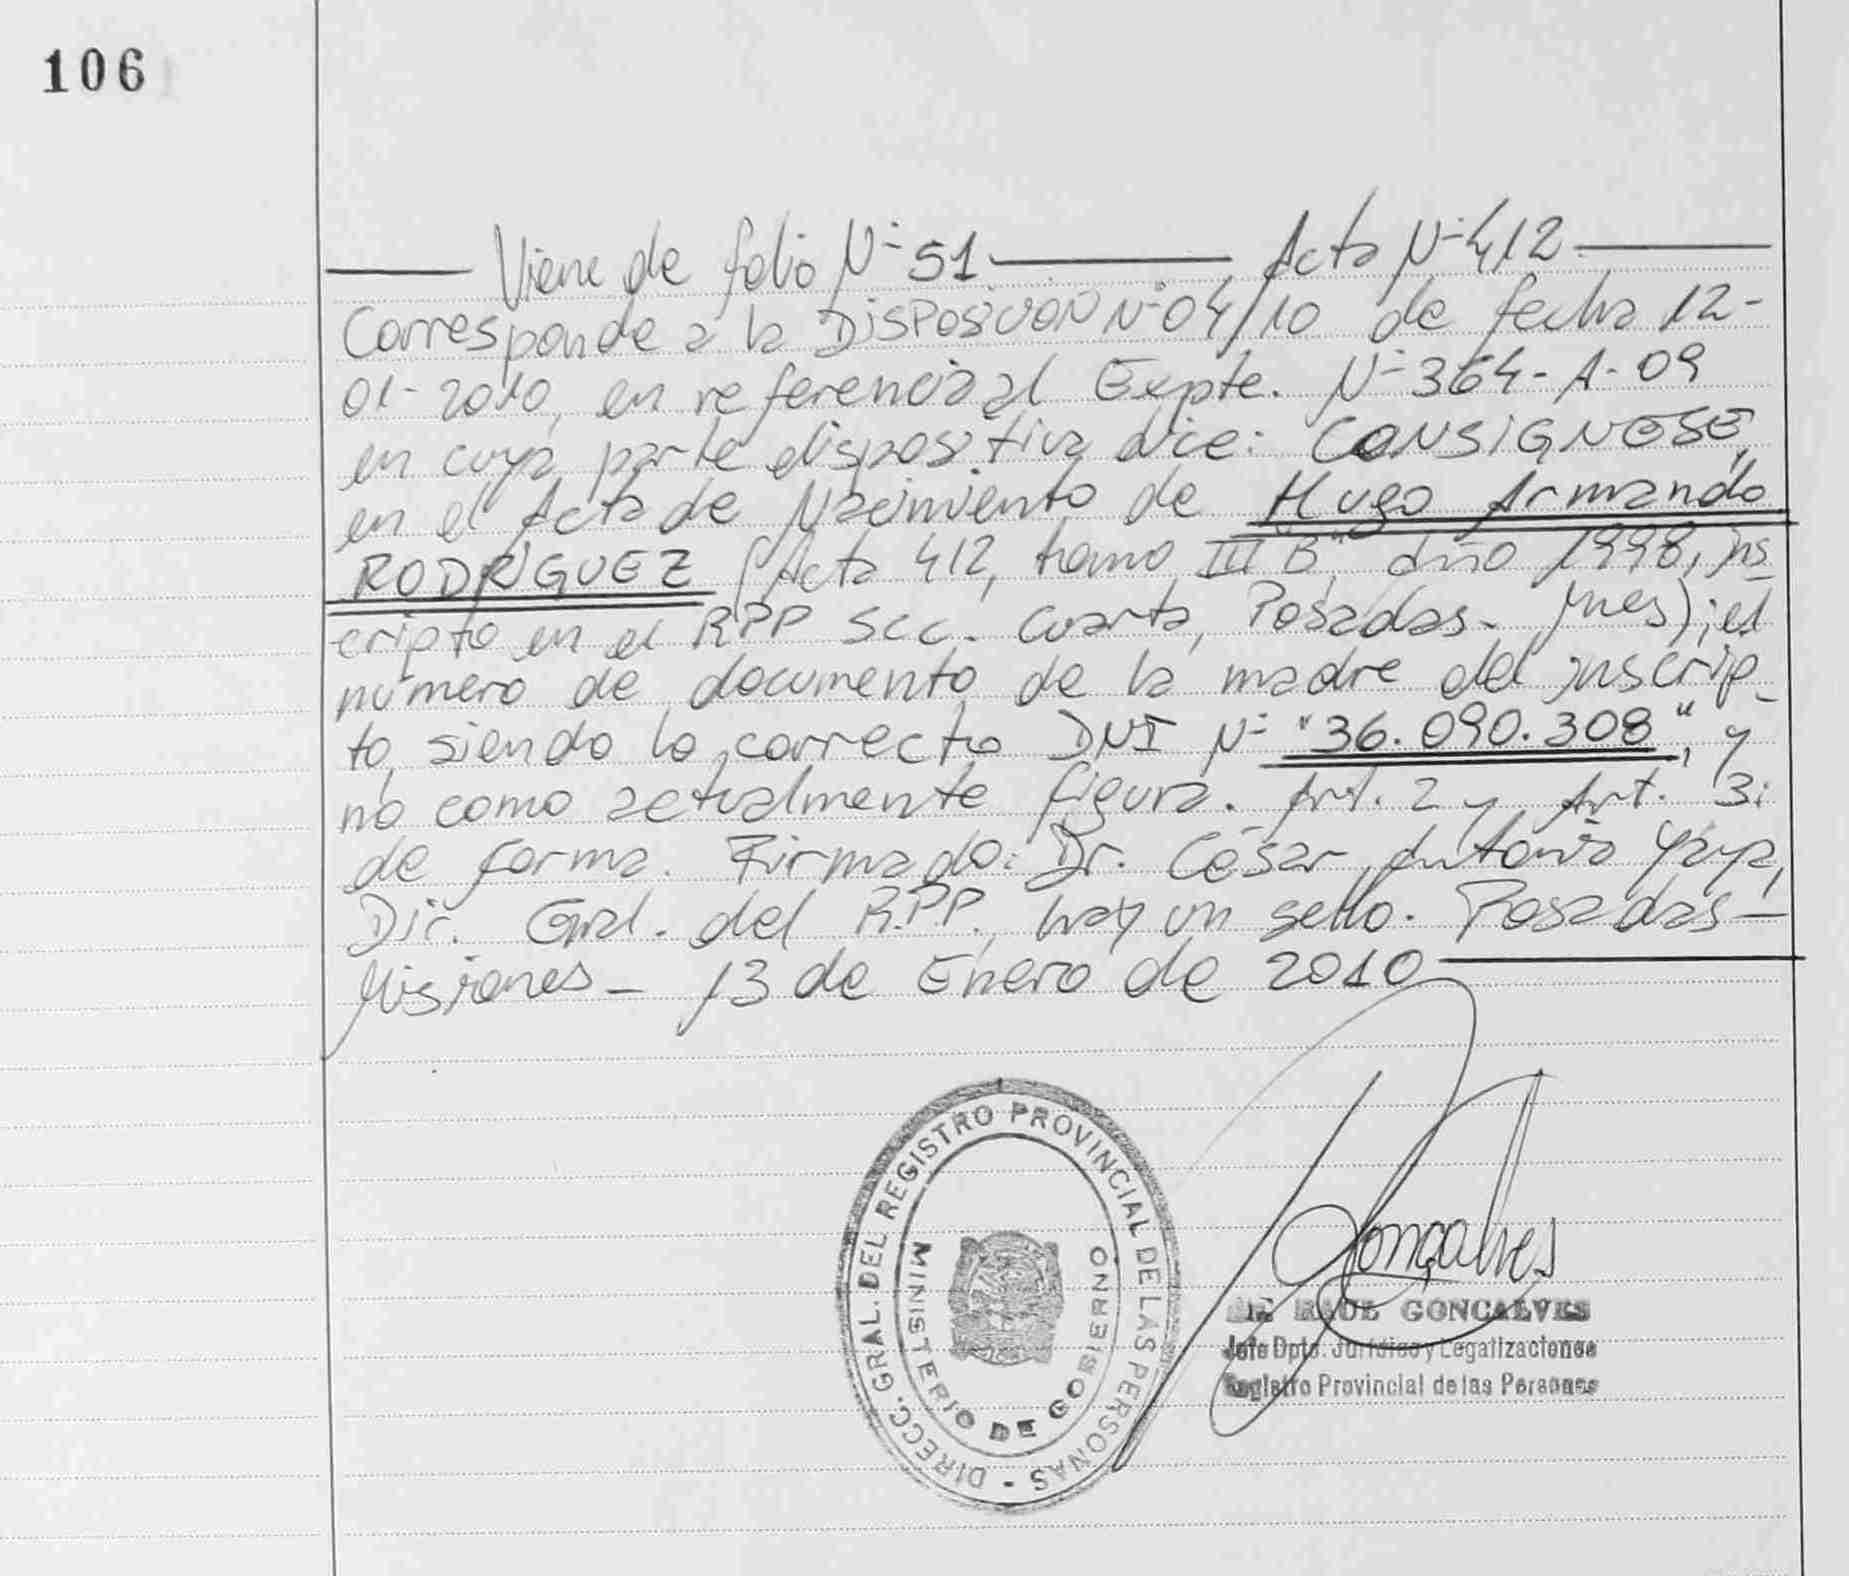 106
Viene de folio Nº 51 Acta Nº 412
Corresponde a la DISPOSICION Nº 04/10 de fecha 12-
01-2010, en referencia al Expte. Nº 364-A-09
en cuya parte dispositiva dice: CONSIGNESE,
en el Acta de Nacimiento de "Hugo Armando
RODRÍGUEZ" (Acta 412, tomo III "B", año 1998, ins-
cripto en el RPP Scc. Cuarta, Posadas- Mnes); el
número de documento de la madre del inscrip-
to, siendo lo correcto DNI Nº "36.090.308", y
no como actualmente figura. Art. 2 y Art. 3:
de forma. Firmado: Dr. César Antonio Yaya,
Dir. Gral. del R.P.P., hay un sello. Posadas-
Misiones- 13 de Enero de 2010
DIRECC. GRAL. DEL REGISTRO PROVINCIAL DE LAS PERSONAS -
MINISTERIO DE GOBIERNO
Gonçalves
RAUL GONCALVES
Jefe Dpto. Jurídico y Legalizaciones
Registro Provincial de las Personas